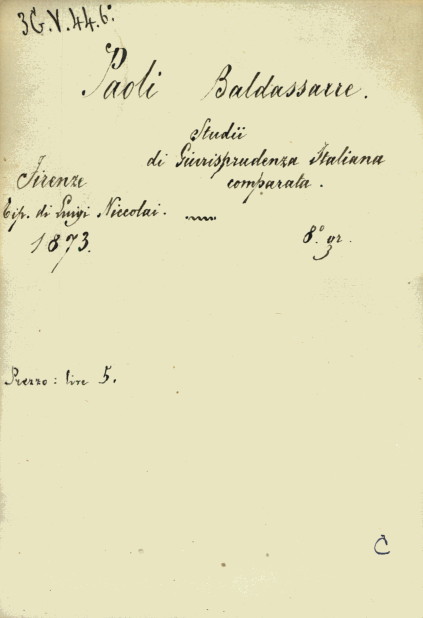 3G.V.44.6°
Paoli Baldassarre.
Studii
di Giurisprudenza Italiana
comparata.
Firenze
Tip. di Luigi Niccolai.
1873.
8.° gr.
Prezzo: lire 5.
C